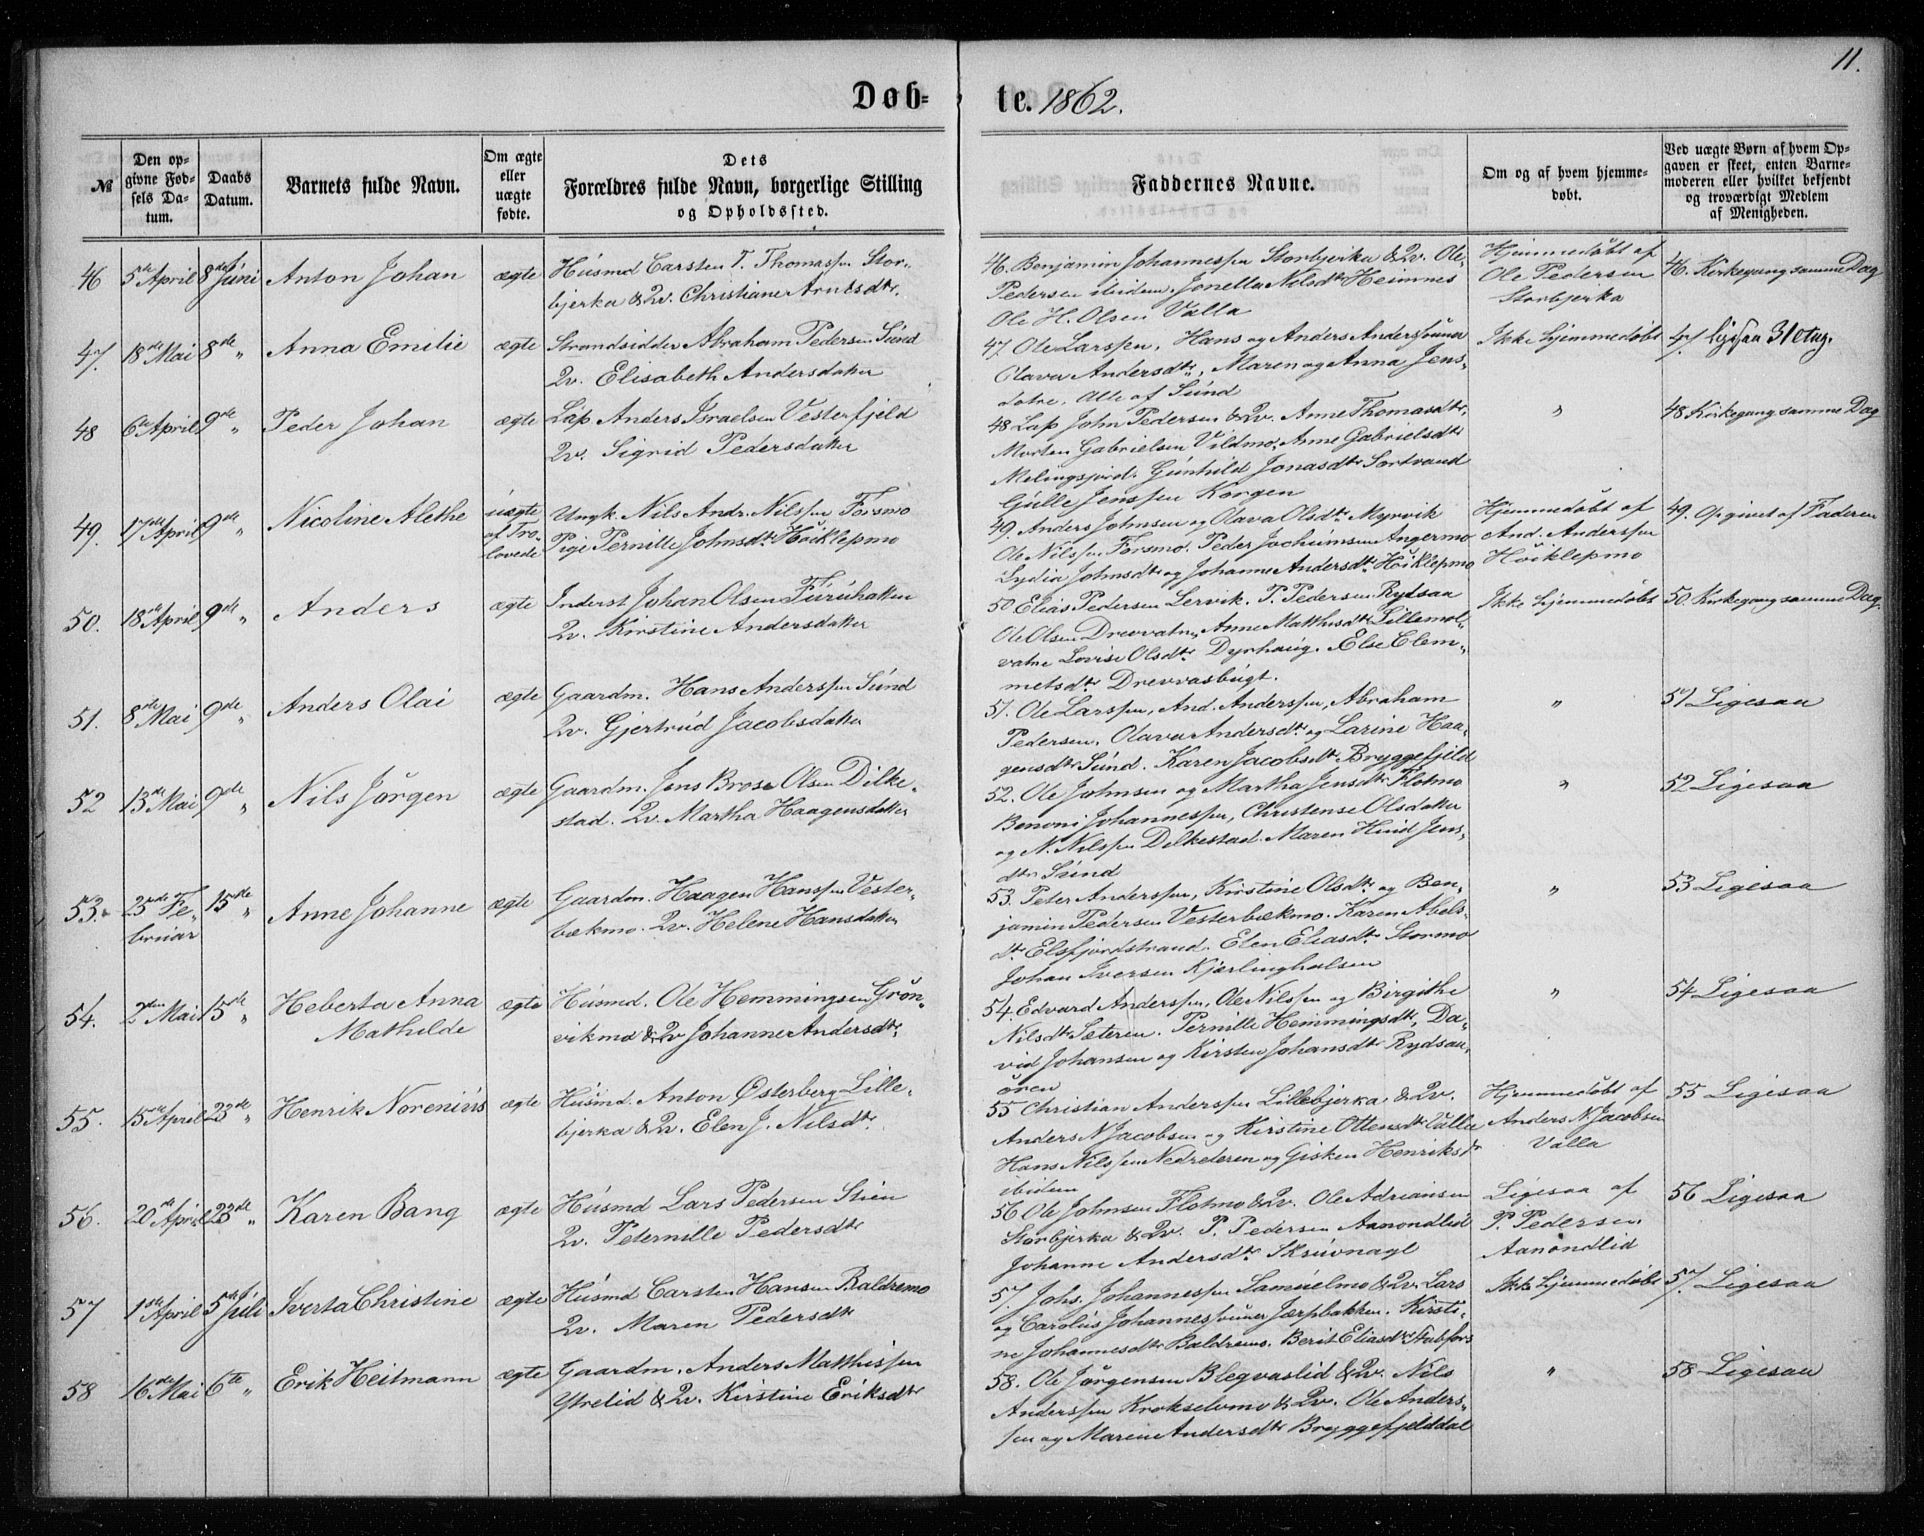 11.
Døb-te. 1862.
№
Den opgivne Fødsels Datum.
Daabs Datum.
Barnets fulde Navn.
Om ægte eller uægte fødte.
Dets Forældres fulde Navn, borgerlige Stilling og Opholdssted.
Faddernes Navne.
Om og af hvem hjemmedøbt.
Ved uægte Børn af hvem Opgaven er skeet, enten Barnemoderen eller hvilket bekjendt og troværdigt Medlem af Menigheden.
46 5te April 8de Juni Anton Johan ægte Husmd Carsten T. Thomassen Stor-
bjerka & Qv. Christiane Arntsdtr.
46. Benjamin Johannessen Storbjerka & Qv. Ole
Pedersen ibidem. Jonella Nilsdtr Heimnes
Ole H. Olsen Valla
Hjemmedøbt af
Ole Pedersen
Storbjerka
46. Kirkegang samme Dag
47. 18de Mai 8de " Anna Emilie ægte Strandsidder Abraham Pedersen Sund
Qv. Elisabeth Andersdatter
47 Ole Larssen, Hans og Anders Anderssønner
Olava Andersdtr, Maren og Anna Jens-
døtre, Alle af Sund
Ikke hjemmedøbt
47 ligesaa
48 6te April 9de " Peder Johan ægte Lap Anders Israelsen Vesterfjeld
Qv. Sigrid Pedersdatter
48 Lap John Pedersen & Qv. Anne Thomasdtr,
Morten Gabrielsen Vildmo, Anne Gabrielsdtr
Gunhild Jonasdtr Sortvand
Gulle Jenssen Korgen
"
48 Kirkegang samme Dag
49. 17de April 9de " Nicoline Alethe uægte
af Tro-
lovede
Ungk. Nils Andr. Nilssen Forsmo
Pige Pernille Johnsdtr Høiklepmo
49. Anders Johnsen og Olava Olsdtr Myrvik
Ole Nilssen Forsmo. Peder Jochumsen Angermo
Lydia Johnsdtr og Johanne Andersdtr Høiklepmo
Hjemmedøbt af
And. Anderssen
Høiklepmo
49. Opgivet af Faderen
50. 18de April 9de " Anders ægte Inderst Johan Olsen Furuhatten
Qv. Kirstine Andersdatter
50 Elias Pedersen Lervik. P. Pedersen Rydsaa
Ole Olsen Drevvatn, Anne Matthisdtr Lillemol-
vatne Lovise Olsdtr Dyrhaug. Else Clem-
metsdtr Drevvasbugt.
Ikke hjemmedøbt
50. Kirkegang samme Dag.
51. 8de Mai 9de " Anders Olai ægte Gaardm. Hans Anderssen Sund
Qv. Gjertrud Jacobsdatter
51. Ole Larssen, And. Anderssen, Abraham
Pedersen. Olava Andersdtr og Larine Haa-
gensdtr Sund. Karen Jacobsdtr Bryggefjeld
"
51 Ligesaa
52 13de Mai 9de " Nils Jørgen ægte Gaardm. Jens Brose Olsen Dilke-
stad. Qv. Martha Haagensdatter
52. Ole Johnsen og Martha Jensdtr Flotmo
Benoni Johannessen, Christense Olsdatter
og N. Nilssen Dilkestad. Maren Hind Jens-
dtr Sund
"
52 Ligesaa
53. 25de Fe-
bruar
15de " Anne Johanne ægte Gaardm. Haagen Hanssen Vester-
bækmo. Qv. Helene Hansdatter
53. Peter Anderssen, Kirstine Olsdtr og Ben-
jamin Pedersen Vesterbækmo. Karen Abels-
dtr Elsfjordstrand. Elen Eliasdtr Stormo
Johan Iversen Kjærlinghalsen
"
53 Ligesaa
54. 2den Mai 15de " Heberta Anna
Mathilde
ægte Husmd. Ole Hemmingsen Grøn-
vikmo & Qv Johanne Andersdtr.
54. Edvard Anderssen, Ole Nilssen og Birgithe
Nilsdtr Sæteren. Pernille Hemmingsdtr, Da-
vid Johansen og Kirsten Johansdtr Rydsaa-
øren
"
54 Ligesaa
55. 15de April 23de " Henrik Norenius ægte Husmd. Anton Østerberg Lille-
bjerka & Qv. Elen J. Nilsdtr
55 Christian Anderssen Lillebjerka & Qv.
Anders N Jacobsen og Kirstine Ottensdtr Valla
Hans Nilssen Nedrederen og Gisken Henriksdtr
ibidem
Hjemmedøbt af
Anders N. Jacobsen
Valla
55 Ligesaa
56. 20de April 23de " Karen Bang ægte Husmd Lars Pedersen Stien
Qv. Peternille Pedersdtr
56 Ole Johnsen Flotmo & Qv. Ole Adriansen
Storbjerka & Qv. P. Pedersen Aanondlid
Johanne Andersdtr Skruvnagl
Ligesaa af
P. Pedersen
Aanondlid
56 Ligesaa
57 1ste April 5te Juli Iverta Christine ægte Husmd Carsten Hansen Baldremo
Qv. Maren Pedersdtr
57. Johs. Johannessen Samuelmo & Qv. Lars
og Carolus Johannessønner Jærpbakken. Kirsti-
ne Johannesdtr Baldremo. Berit Eliasdtr Stabfors
Ikke hjemmedøbt
57. Ligesaa
58 16de Mai 6te " Erik Heitmann ægte Gaardm. Anders Matthissen
Ytrelid & Qv. Kirstine Eriksdtr
58. Ole Jørgensen Blegvaslid & Qv. Nils
Anderssen Krokselvmo & Qv. Ole Anders-
sen og Maren Andersdtr Bryggefjelddal
"
58 Ligesaa